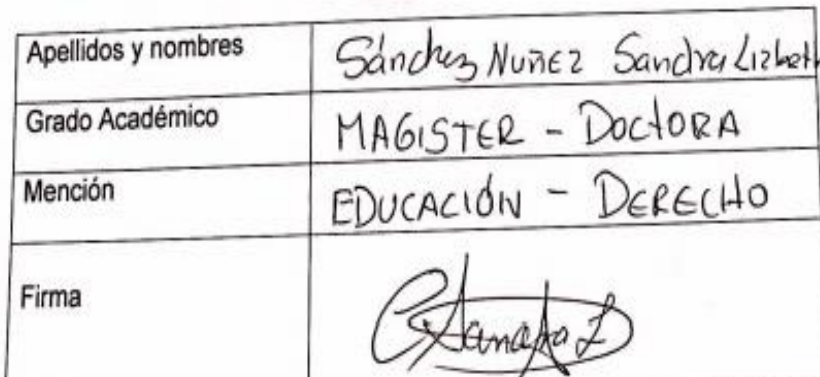 Apellidos y nombres Sánchez NUÑEZ Sandra Lizbeth
Grado Académico MAGISTER - DOCTORA
Mención EDUCACIÓN - DERECHO
Firma